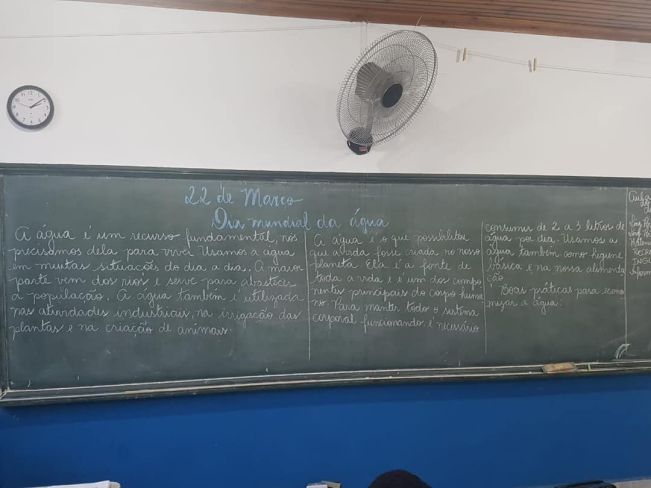 22 de Março
Dia mundial da água
A água é um recurso fundamental, nós
precisamos dela para viver. Usamos a água
em muitas situações do dia a dia. A maior
parte vem dos rios e serve para abastecer
a população. A água também é utilizada
nas atividades industriais, na irrigação das
plantas e na criação de animais.
A água é o que possibilitou
que a vida fosse criada no nosso
planeta. Ela é a fonte de
toda a vida e é um dos compo
nentes principais do corpo huma
no. Para manter todo o sistema
corporal funcionando é necessário
consumir de 2 a 3 litros de
água por dia. Usamos a
água também como higiene
básica e na nossa alimenta
ção.
Boas práticas para econo
mizar a água: